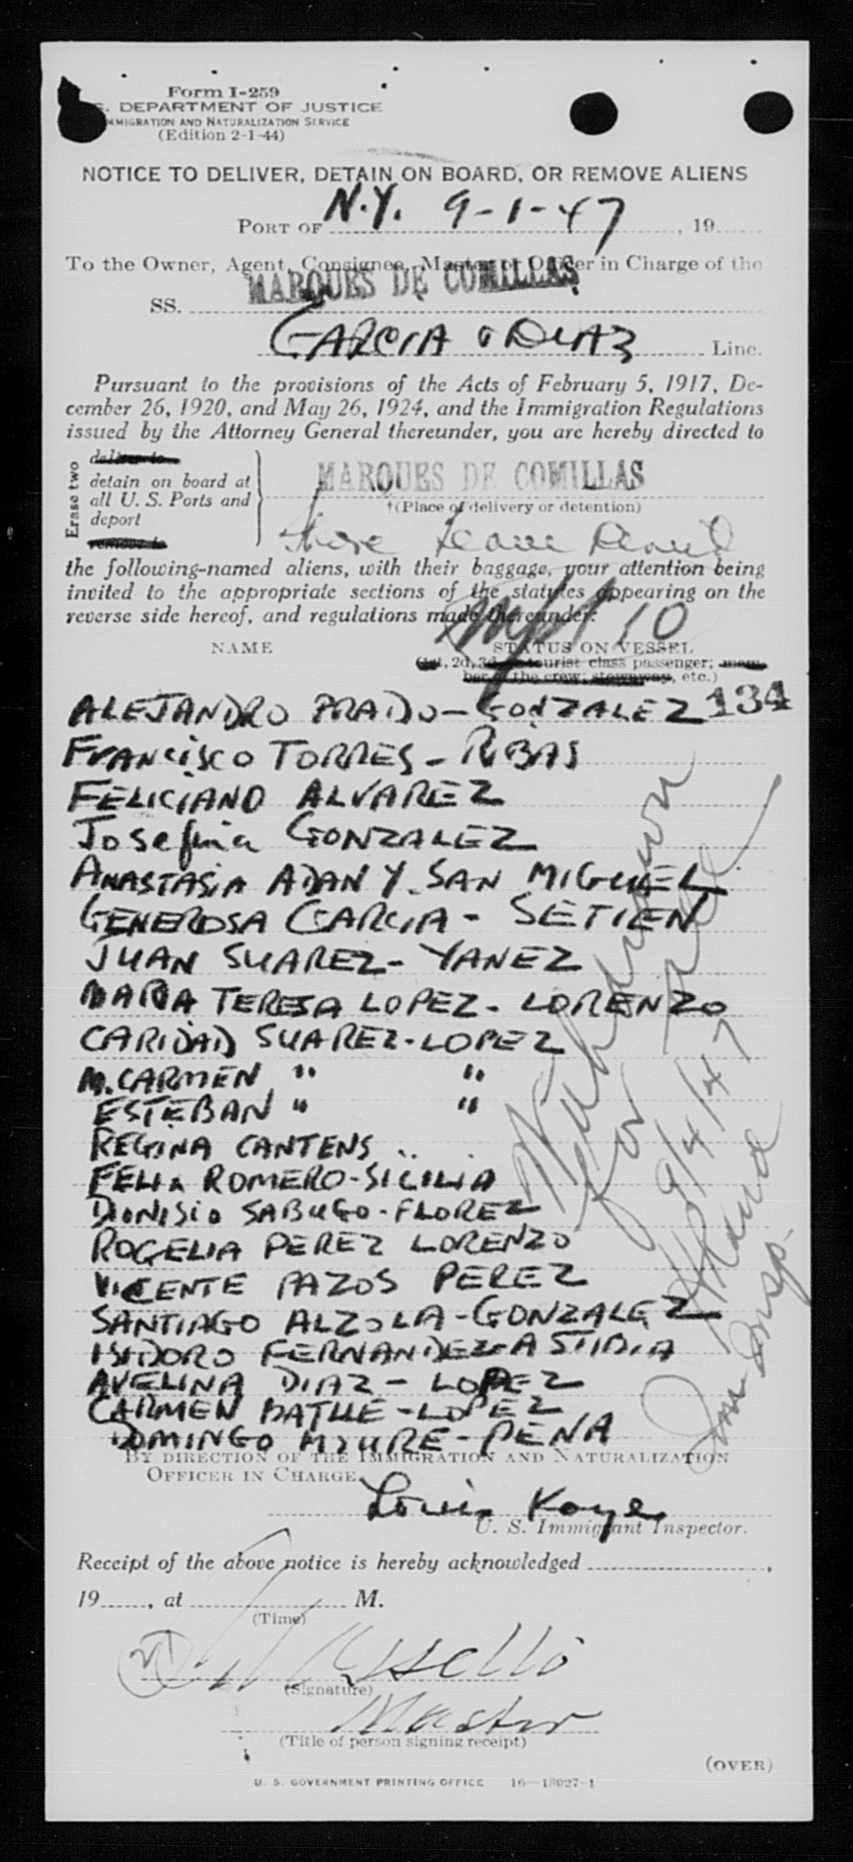 Form I-259
U.S. DEPARTMENT OF JUSTICE
IMMIGRATION AND NATURALIZATION SERVICE
(Edition 2-1-44)
NOTICE TO DELIVER, DETAIN ON BOARD, OR REMOVE ALIENS
PORT OF N.Y. 9-1-47, 19
To the Owner, Agent, Consignee, Master or Officer in Charge of the
SS. MARQUES DE COMILLAS
GARCIA & DIAZ Line.
Pursuant to the provisions of the Acts of February 5, 1917, De-
cember 26, 1920, and May 26, 1924, and the Immigration Regulations
issued by the Attorney General thereunder, you are hereby directed to
Erase two
deliver to
detain on board at
all U. S. Ports and
deport
remove to
MARQUES DE COMILLAS
†(Place of delivery or detention)
Shore Leave Denied
the following-named aliens, with their baggage, your attention being
invited to the appropriate sections of the statutes appearing on the
reverse side hereof, and regulations made thereunder:
10
NAME STATUS ON VESSEL
(1st, 2d, 3d, tourist class passenger; mem-
ber of the crew; stowaway, etc.)
134
ALEJANDRO PRADO-GONZALEZ
FRANCISCO TORRES-RIBAS
FELICIANO ALVAREZ
Josefina GONZALEZ
ANASTASIA ADAN Y. SAN MIGUEL
GENEROSA GARCIA-SETIEN
JUAN SUAREZ-YANEZ
MARIA TERESA LOPEZ-LORENZO
CARIDAD SUAREZ-LOPEZ
M. CARMEN " "
ESTEBAN " "
REGINA CANTENS
FELIX ROMERO-SICILIA
DIONISIO SABUGO-FLOREZ
ROGELIA PEREZ LORENZO
VICENTE PAZOS PEREZ
SANTIAGO ALZOLA-GONZALEZ
ISIDORO FERNANDEZ
AVELINA DIAZ-LOPEZ
CARMEN BATLLE-LOPEZ
DOMINGO -PENA
Withdrawn
for
9/4/47
Imm Insp.
BY DIRECTION OF THE IMMIGRATION AND NATURALIZATION
OFFICER IN CHARGE.
Louis Kaye
U. S. Immigrant Inspector.
Receipt of the above notice is hereby acknowledged ,
19 , at M.
(Time)
21
(Signature)
Master
(Title of person signing receipt)
(OVER)
U. S. GOVERNMENT PRINTING OFFICE 16—18027-1